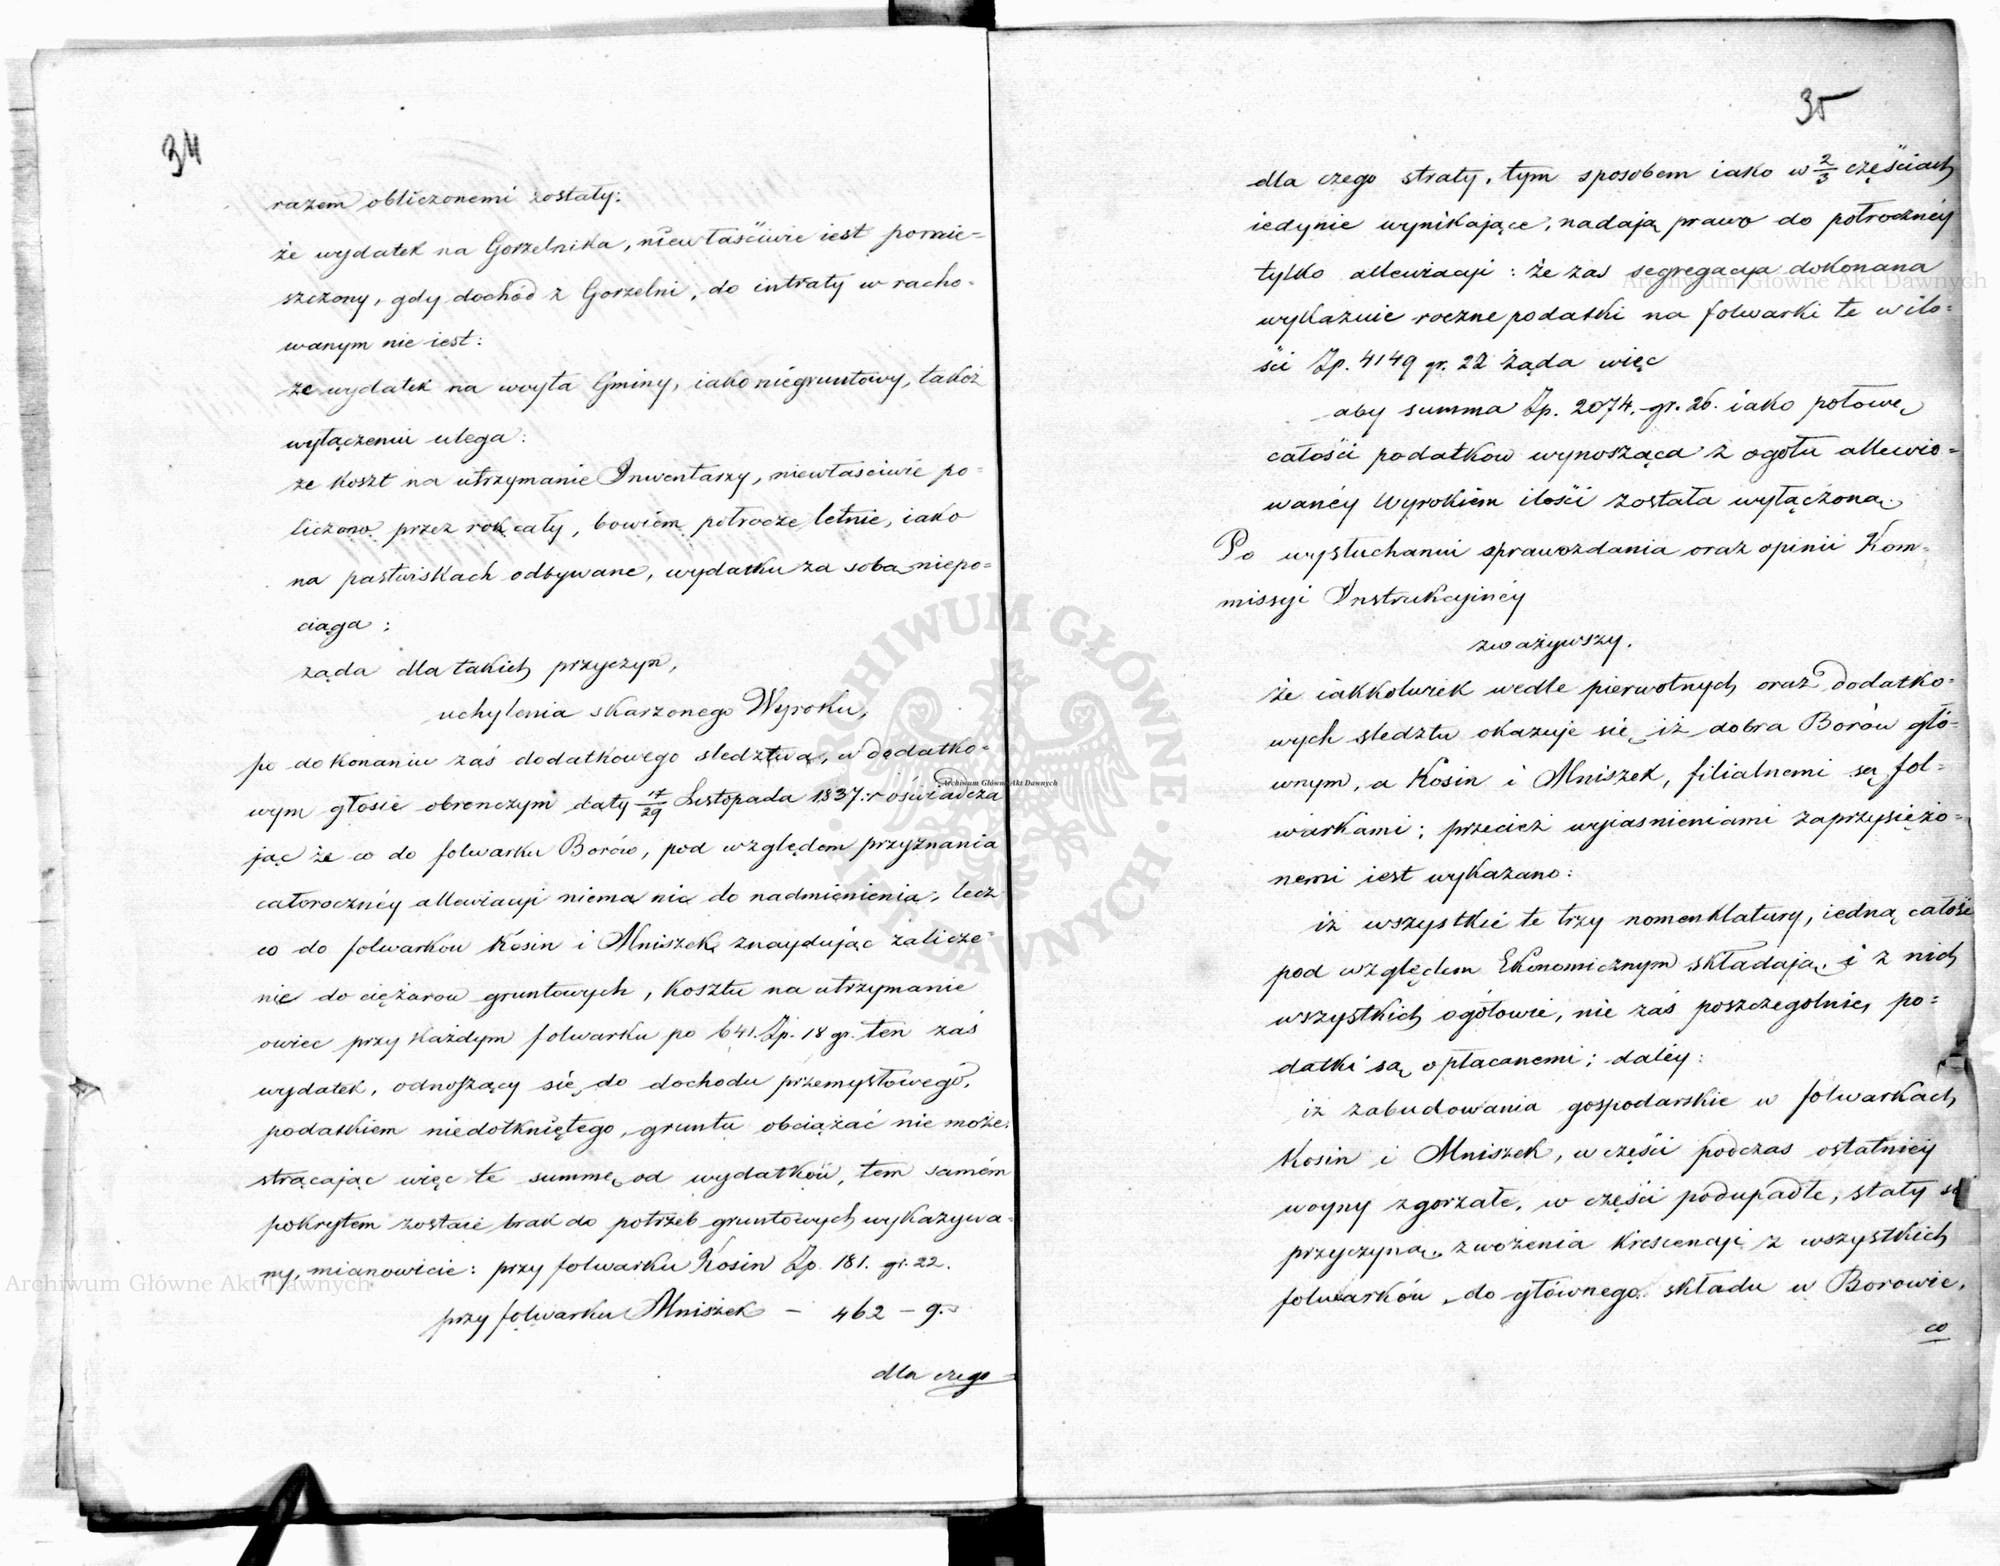 34
razem obliczonemi zostały:
że wydatek na Gorzelnika, niewłaściwie iest pomie=
szczony, gdy dochód z Gorzelni, do intraty w racho=
wanym nie iest:
że wydatek na woyta Gminy, iako niegruntowy, takoż
wyłączeniu ulega:
że koszt na utrzymanie Inwentarzy, niewłaściwie po=
liczono przez rok cały, bowiem półrocze letnie, iako
na pastwiskach odbywane, wydatku za sobą niepo=
ciąga;
żąda dla takich przyczyn,
uchylenia skarżonego Wyroku,
po dokonaniu zaś dodatkowego sledztwa, w dodatko=
wym głosie obronczym daty 17/29 Listopada 1837: r oświadcza
jąc że co do folwarku Borów, pod względem przyznania
całorocznéy allewiacji niema nic do nadmienienia, lecz
co do folwarków Kosin i Mniszek, znayduiąc zalicze=
nie do ciężarow gruntowych, kosztu na utrzymanie
owiec przy każdym folwarku po 641. Zp. 18 gr. ten zaś
wydatek, odnoszący się do dochodu przemysłowego,
podatkiem niedotkniętego, gruntu obciążać nie może:
strącając więc te summę od wydatków, tem samém
pokrytem zostaie brak do potrzeb gruntowych wykazywa=
ny, mianowicie: przy folwarku Kosin Zp. 181. gr. 22.
przy folwarku Mniszek – 462 – 9.
dla czego
35
dla czego straty, tym sposobem iako w 2/3 częściach
iedynie wynikające, nadają prawo do półrocznéy
tylko allewiacji: że zaś segregacya dokonana
wykazuie roczne podatki na folwarki te w ilo=
ści Zp. 4149 gr. 22 żąda więc
aby summa Zp. 2074. gr. 26. iako połowę
całości podatkow wynosząca z ogółu allewio=
wanéy Wyrokiem ilości została wyłączoną.
Po wysłuchaniu sprawozdania oraz opinii Kom=
missyi Instrukcyinéy
zważywszy.
że iakkolwiek wedle pierwotnych oraz dodatko=
wych sledztw okazuje się, iż dobra Borów głó=
wnym, a Kosin i Mniszek, filialnemi są fol=
warkami; przecież wyiasnieniami zaprzysiężo=
nemi iest wykazano:
iż wszystkie te trzy nomenklatury, iedną całość
pod względem Ekonomicznym składają, i z nich
wszystkich ogółowie, nie zaś poszczególnie, po=
datki są opłacanemi; daléy:
iż zabudowania gospodarskie w folwarkach
Kosin i Mniszek, w części podczas ostatniéy
woyny zgorzałe, w części podupadłe, stały się
przyczyną zwożenia Krescencyi z wszystkich
folwarków, do głównego składu w Borowie,
co
Archiwum Główne Akt Dawnych
Archiwum Główne Akt Dawnych
Archiwum Główne Akt Dawnych
ARCHIWUM GŁÓWNE • AKT DAWNYCH •